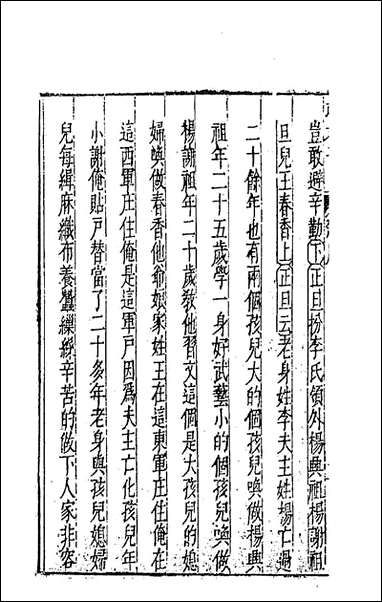 豈敢避辛勤下正旦扮李氏領外楊興祖楊謝祖
旦兒王春香上正旦云老身姓李夫主姓楊亡過
二十餘年也有兩個孩兒大的個孩兒喚做楊興
祖年二十五歲學一身好武藝小的個孩兒喚做
楊謝祖年二十歲教他習文這個是大孩兒的媳
婦喚做春香他爺娘家姓王在這東軍庄住俺在
這西軍庄住俺是這軍戶因爲夫主亡化孩兒年
小謝俺貼戶替當了二十多年老身與孩兒媳婦
兒每緝麻織布養蠶繰絲辛苦的做下人家非容